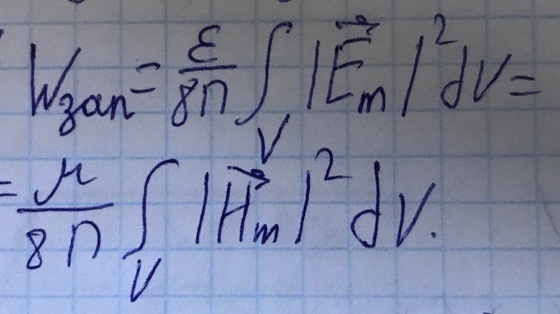 Wзап = ε/8π ∫V |E⃗m|² dV =
= μ/8π ∫V |H⃗m|² dV.